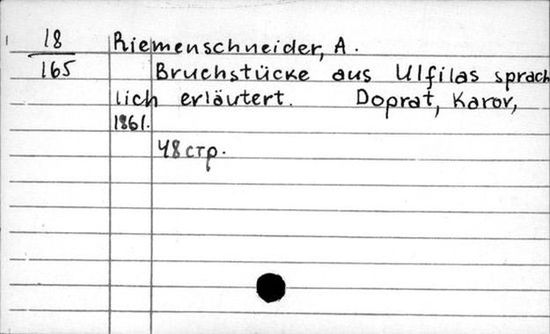 18 Riemenschneider, A.
165 Bruchstücke aus Ulfilas sprach
lich erläutert. Doprat, Karov,
1861.
48 стр.